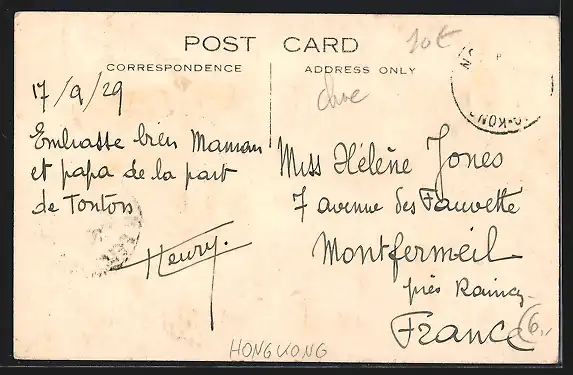 POST CARD
CORRESPONDENCE
ADDRESS ONLY
10€
17/9/29
Embrasse bien Maman
et papa de la part
de Tonton
Henry.
Miss Hélène Jones
7 avenue des Fauvette
Montfermeil
près Raincy
France
HONGKONG